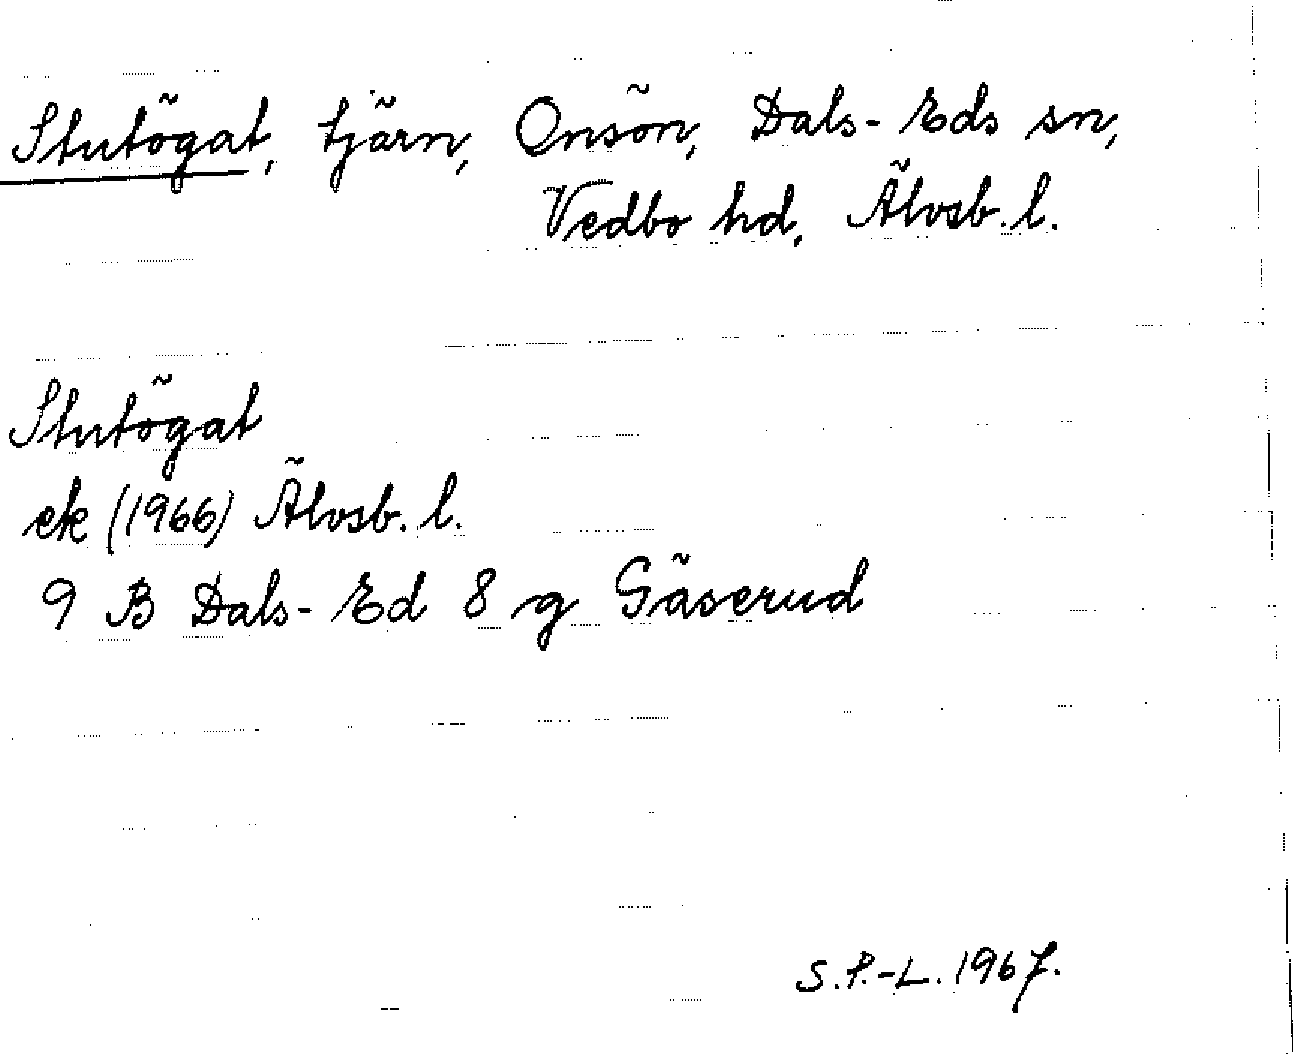 Stutögat, tjärn, Onsön, Dals-Eds sn,
Vedbo hd, Älvsb. l.
Stutögat
ek (1966) Älvsb. l.
9 B Dals-Ed 8 g Gäserud
S.P.-L. 1967.